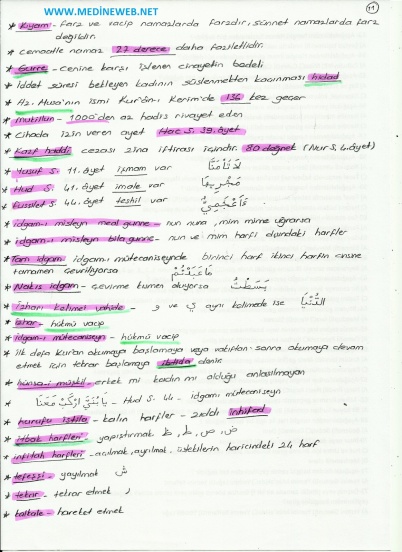 www.MEDİNEWEB.NET
11
* Kıyam - Farz ve vacip namazlarda farzdır, sünnet namazlarda farz
değildir.
* Cemaatle namaz 27 derece daha faziletlidir.
* Gurre - cenine karşı işlenen cinayetin bedeli
* İddet süresi bekleyen kadının süslenmekten kaçınması hidad
* Hz. Musa'nın ismi Kur'ân-ı Kerim'de 136 kez geçer
* Mukillun - 1000'den az hadis rivayet eden
* Cihada izin veren ayet Hac S. 39. âyet
* Kazf haddi cezası zina iftirası içindir. 80 değnek (Nur S, 4. âyet)
* Yusuf S. 11. âyet işmam var لَا تَأْمَنَّا
* Hud S. 41. âyet imale var مَجْرٰيهَا
* Fussilet S. 44. âyet teshil var ءَاَعْجَمِيٌّ
* idgam-ı misleyn meal gunne - nun nuna, mim mime uğrarsa
* idgam-ı misleyn bila gunne - nun ve mim harfi dışındaki harfler
* Tam idgam idgam-ı mütecaniseynde birinci harf ikinci harfin cinsine
tamamen çevriliyorsa مَا عَبَدْتُمْ
* Nakıs idgam - çevirme kısmen oluyorsa بَسَطْتَ
* İzharı kelimei vahide - و ve ى aynı kelimede ise الدُّنْيَا
* İzhar - hükmü vacip
* idgam-ı mütecaniseyn - hükmü vacip
* ilk defa Kur'an okumaya başlamaya veya vakıftan sonra okumaya devam
etmek için tekrar başlamaya ibtida denir.
* hünsa-i müşkil - erkek mi kadın mı olduğu anlaşılmayan
* يَا بُنَيَّ ارْكَبْ مَعَنَا - Hud S. 44 - idgamı mütecaniseyn
* hurufu istila - kalın harfler - zıddı inhifad
* itbak harfleri - yapıştırmak ص, ض, ط, ظ
* infitah harfleri - açılmak, ayrılmak, üsttekilerin haricindeki 24 harf
* tefeşşi - yayılmak ش
* tekrar - tekrar etmek ر
* kalkale - hareket etmek